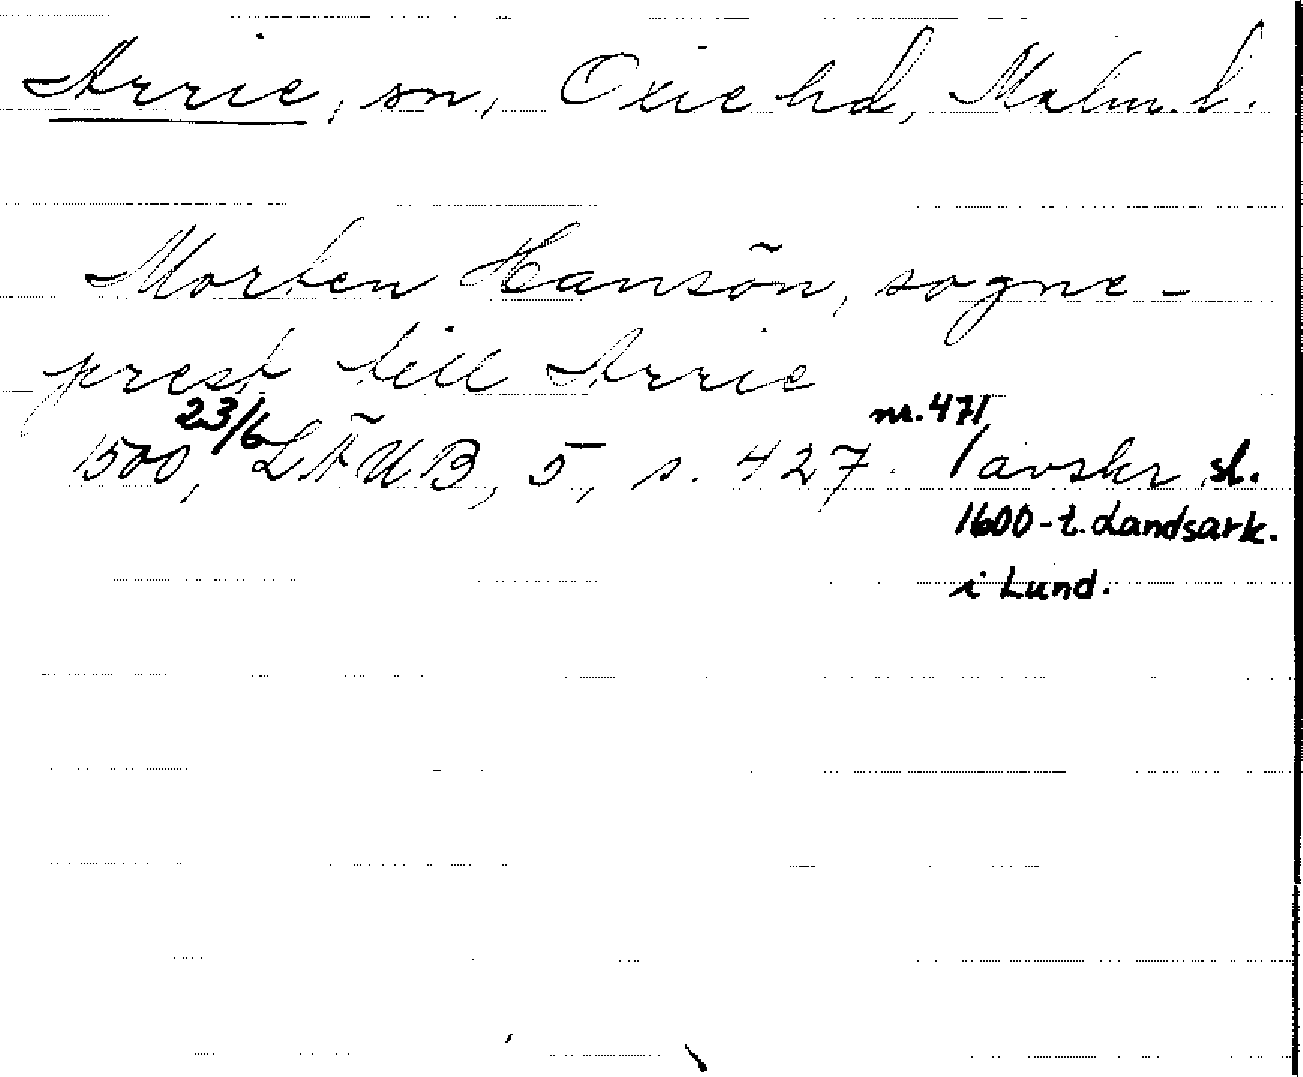 Arrie, sn, Oxie hd, Malm. l.
Morten Hansõn, sogne-
prest till Arrie
1500, 23/6 LÄUB, 5, s. 427. nr. 471 /avskr sl.
1600-t. Landsark.
i Lund.